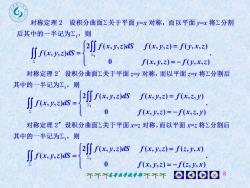 对称定理 2 设积分曲面Σ关于平面 y=x 对称，而以平面 y=x 将Σ分割
后其中的一半记为Σ₁，则
∬_Σ f(x,y,z)dS = { 2∬_Σ₁ f(x,y,z)dS f(x,y,z)= f(y,x,z)
0 f(x,y,z)=−f(y,x,z) .
对称定理 2′ 设积分曲面Σ关于平面 z=y 对称，而以平面 z=y 将Σ分割后
其中的一半记为Σ₁，则
∬_Σ f(x,y,z)dS = { 2∬_Σ₁ f(x,y,z)dS f(x,y,z)= f(x,z,y)
0 f(x,y,z)=−f(x,z,y) .
对称定理 2″ 设积分曲面Σ关于平面 x=z 对称，而以平面 x=z 将Σ分割后
其中的一半记为Σ₁，则
∬_Σ f(x,y,z)dS = { 2∬_Σ₁ f(x,y,z)dS f(x,y,z)= f(z,y,x)
0 f(x,y,z)=−f(z,y,x) .
8